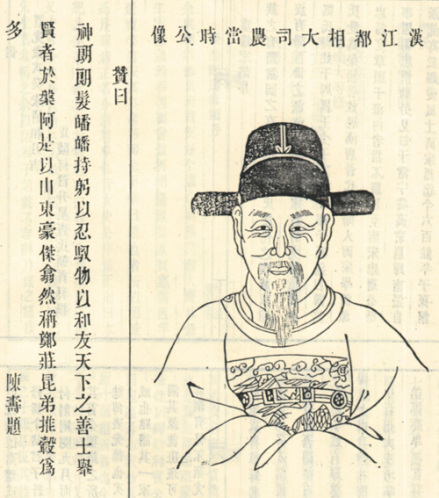 漢江都相大司農當時公像
贊曰
神朗朗髮皤皤持躬以忍馭物以和友天下之善士舉
賢者於槃阿是以山東豪傑翕然稱鄭莊昆弟推轂為
多
陳壽題